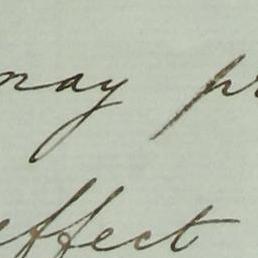 may pr
effect